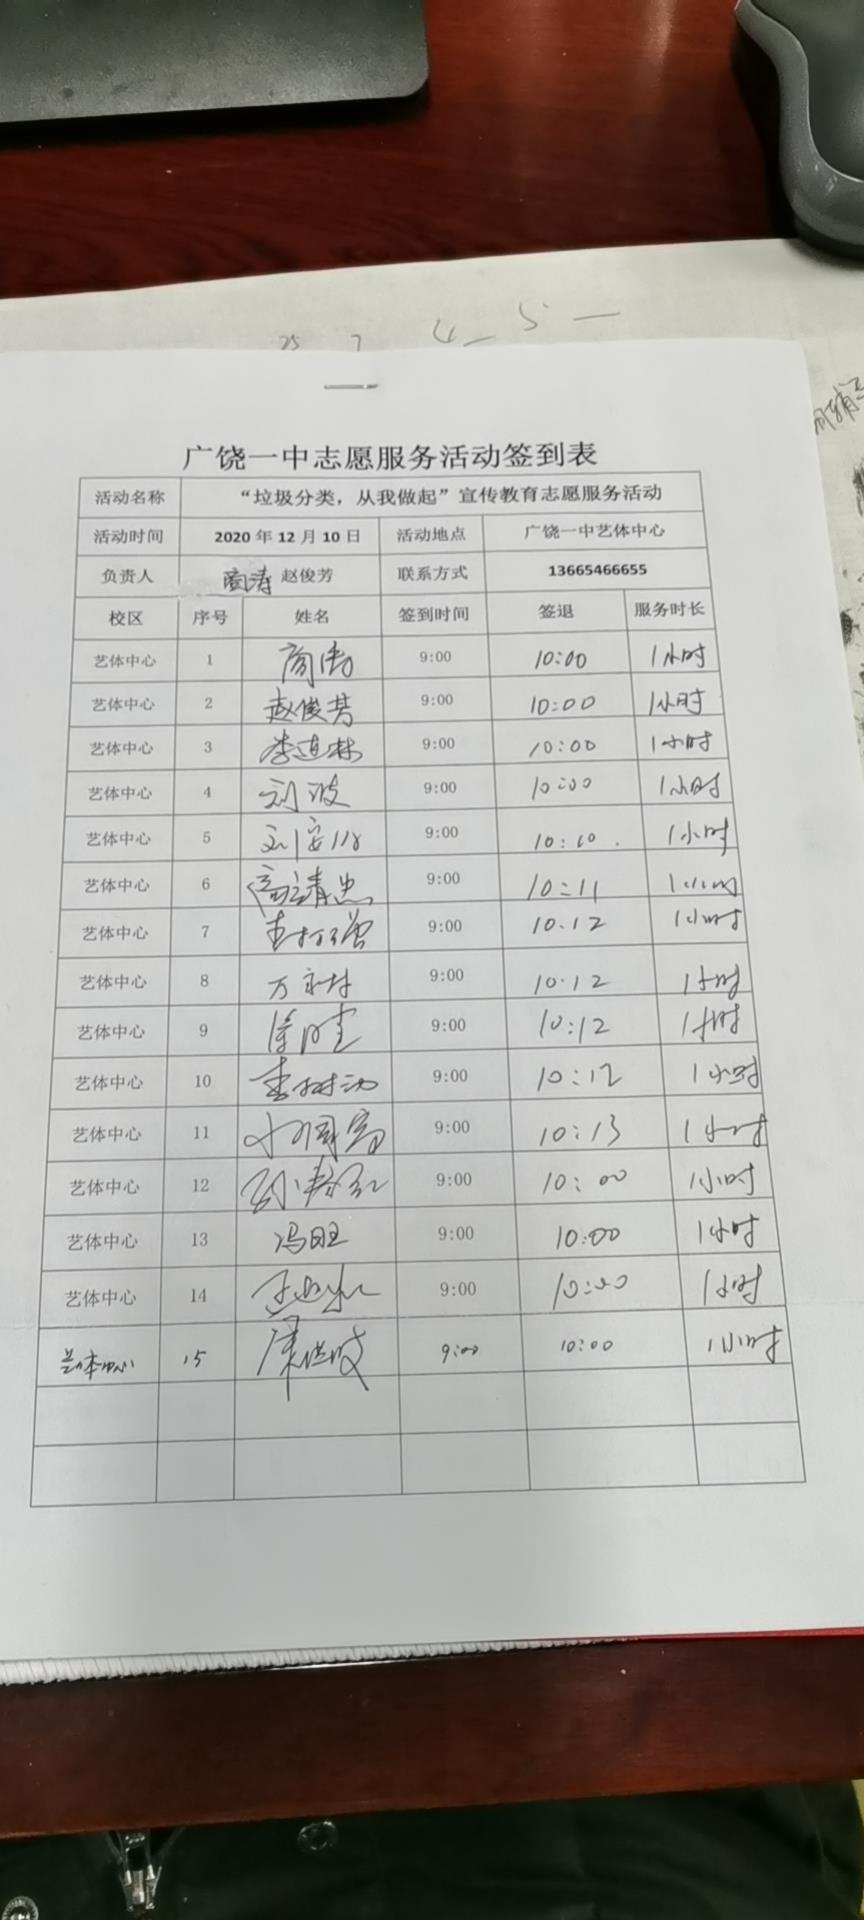 25 7 4 5 一
广饶一中志愿服务活动签到表
活动名称 “垃圾分类，从我做起”宣传教育志愿服务活动
活动时间 2020 年 12 月 10 日 活动地点 广饶一中艺体中心
负责人 商涛 赵俊芳 联系方式 13665466655
校区 序号 姓名 签到时间 签退 服务时长
艺体中心 1 商涛 9:00 10:00 1小时
艺体中心 2 赵俊芳 9:00 10:00 1小时
艺体中心 3 李连林 9:00 10:00 1小时
艺体中心 4 刘波 9:00 10:00 1小时
艺体中心 5 9:00 10:10. 1小时
艺体中心 6 9:00 10:11 1小时
艺体中心 7 9:00 10.12 1小时
艺体中心 8 9:00 10.12 1小时
艺体中心 9 9:00 10:12 1小时
艺体中心 10 9:00 10:12 1小时
艺体中心 11 9:00 10:13 1小时
艺体中心 12 9:00 10:00 1小时
艺体中心 13 冯旺 9:00 10:00 1小时
艺体中心 14 9:00 10:00 1小时
艺体中心 15 9:00 10:00 1小时